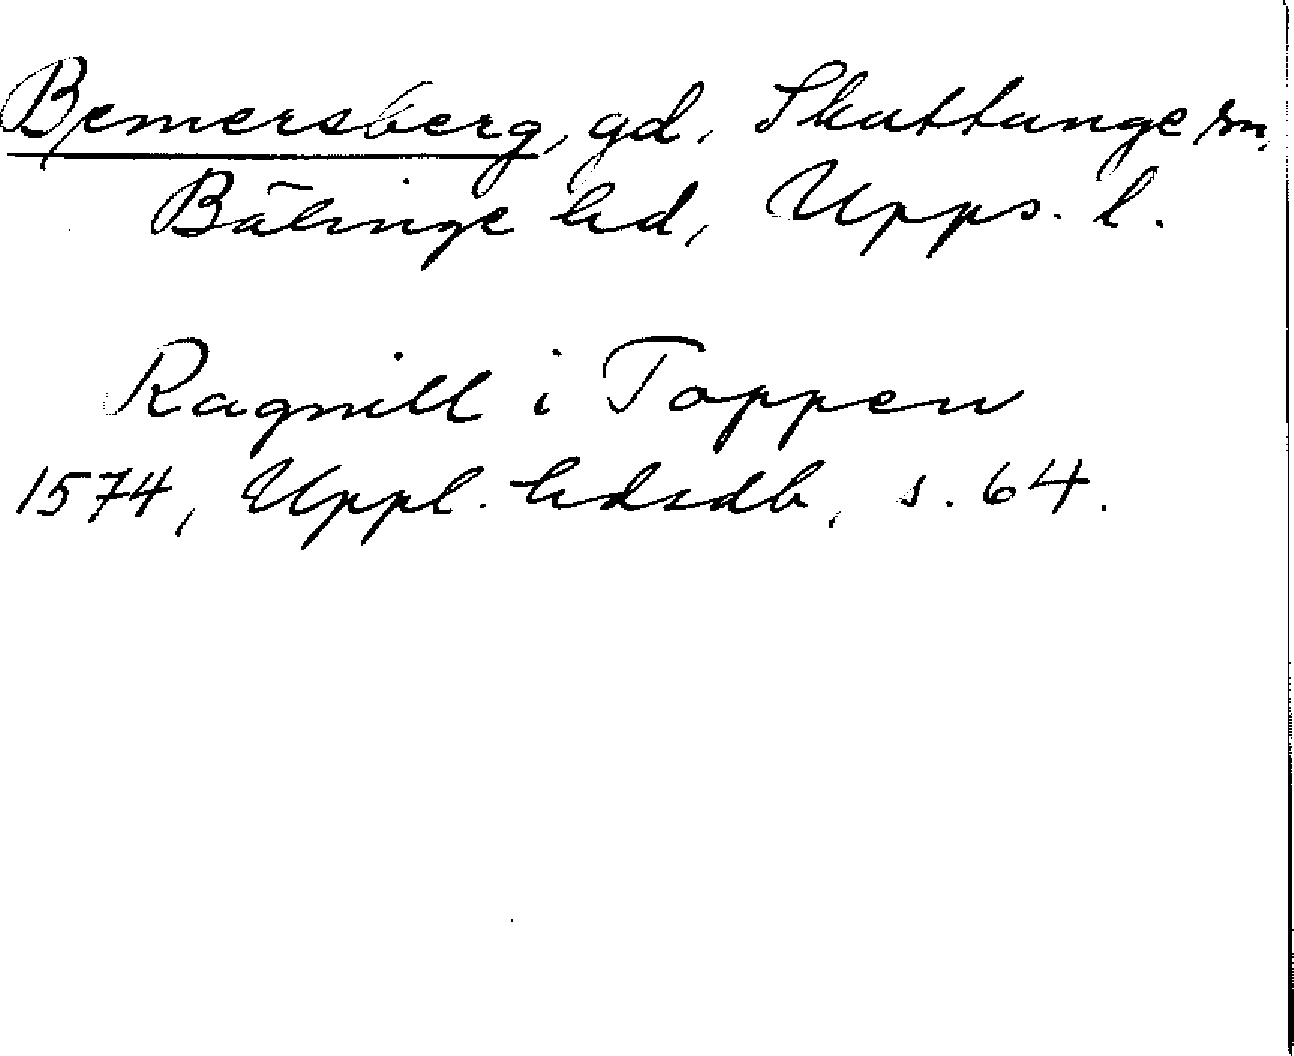 Bemersberg, gd, Skuttunge sn,
Bälinge hd, Upps. l.
Ragnill i Toppen
1574, Uppl. hdsdb, s. 64.